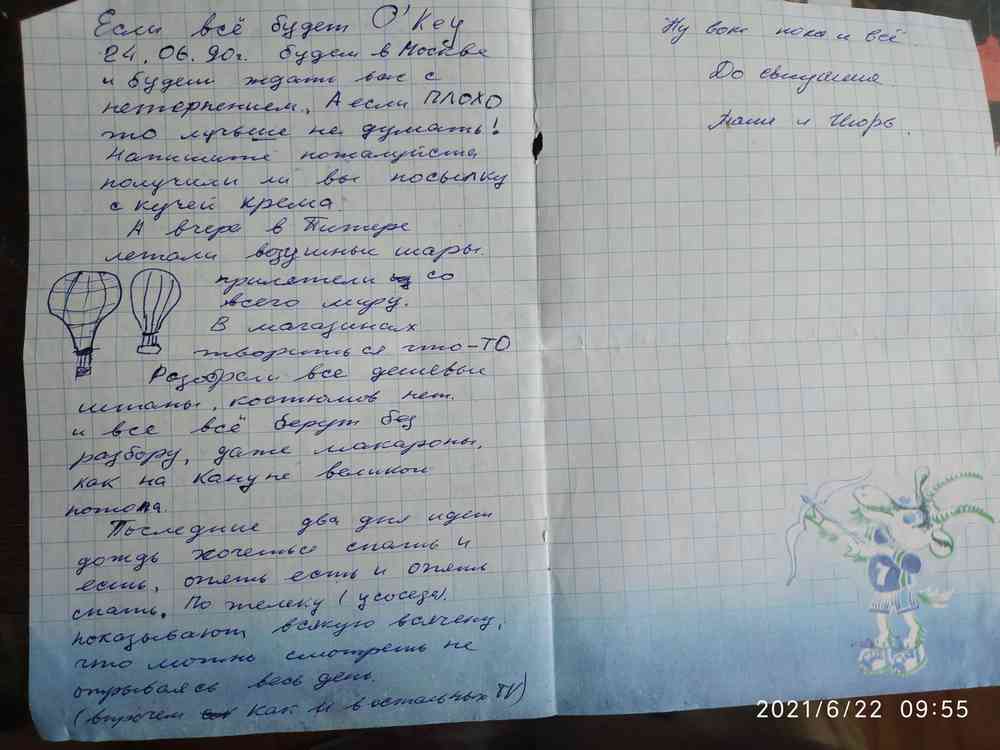 Если всё будет O'Key
24.06.90г. будем в Москве
и будем ждать вас с
нетерпением. А если ПЛОХО
то лучьше не думать!
Напишите пожалуйста
получили ли вы посылку
с кучей крема.
А вчера в Питере
летали возушные шары.
прилетели со
всего миру.
В магазинах
творитьься что-ТО
Розобрали все дешевые
штаны, костюмов нет.
и все всё берут без
разбору, даже макароны,
как на кануне великой
потопа.
Последние два дня идет
дождь хочеться спать и
есть, опять есть и опять
спать. По телеку (у соседа).
показывают всякую всячену,
что можно смотреть не
отрываясь весь день.
(впрочем как и в остальных TV)
Ну вот пока и всё.
До свидания
и Игорь.
7
2021/6/22 09:55